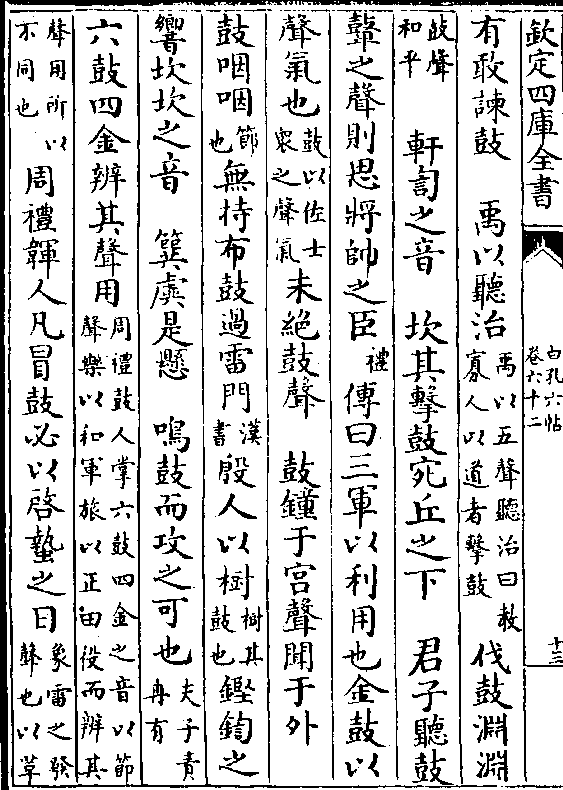 欽定四庫全書
白孔六帖
卷六十二
十三
有敢諫鼓 禹以聽治禹以五聲聽治曰教寡人以道者擊鼓 伐鼓淵淵
鼓聲和平 軒訇之音 坎其擊鼓宛丘之下 君子聽鼓
鼙之聲則思將帥之臣禮 傳曰三軍以利用也金鼓以
聲氣也鼓以佐士衆之聲氣 未絶鼓聲 鼓鐘于宫聲聞于外
鼓咽咽節也 無持布鼓過雷門漢書 殷人以樹樹其鼓也 鏗鍧之
響坎坎之音 簨虡是懸 鳴鼓而攻之可也夫子責冉有
六鼓四金辨其聲用周禮鼓人掌六鼓四金之音以節聲樂以和軍旅以正田役而辨其
聲用所以不同也 周禮韗人凡冒鼓必以啓蟄之日象雷之發聲也以草